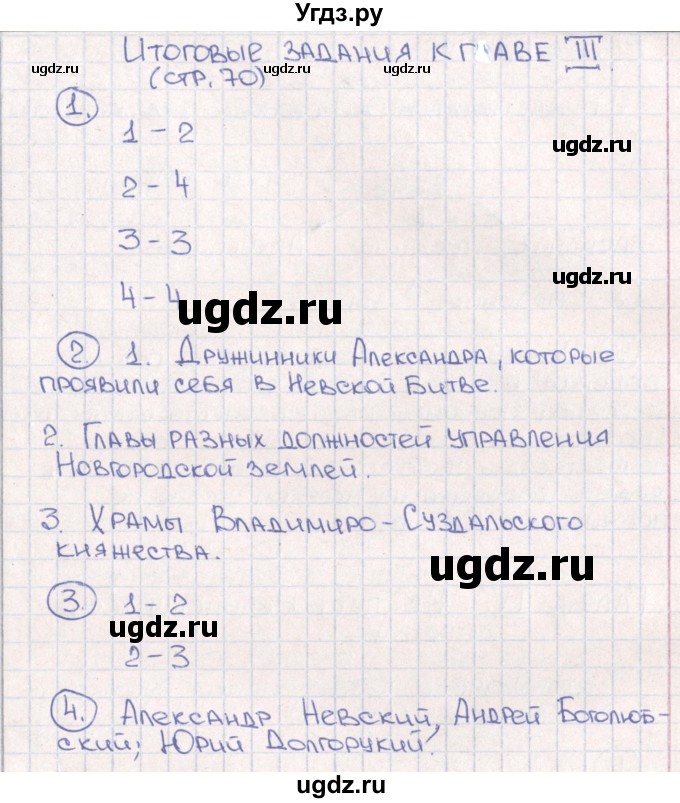 Угдз.ру
Итоговые задания к главе III.
(стр. 70)
ugdz.ru
ugdz.ru
1.
1 – 2
ugdz.ru
2 – 4
3 – 3
ugdz.ru
4 – 4
ugdz.ru
2. 1. Дружинники Александра, которые
проявили себя в Невской Битве.
2. Главы разных должностей управления
Новгородской землей.
3. Храмы Владимиро-Суздальского
княжества.
ugdz.ru
3. 1 – 2
ugdz.ru
2 – 3
4. Александр Невский, Андрей Боголюб-
ский; Юрий Долгорукий.
ugdz.ru
ugdz.ru
ugdz.ru